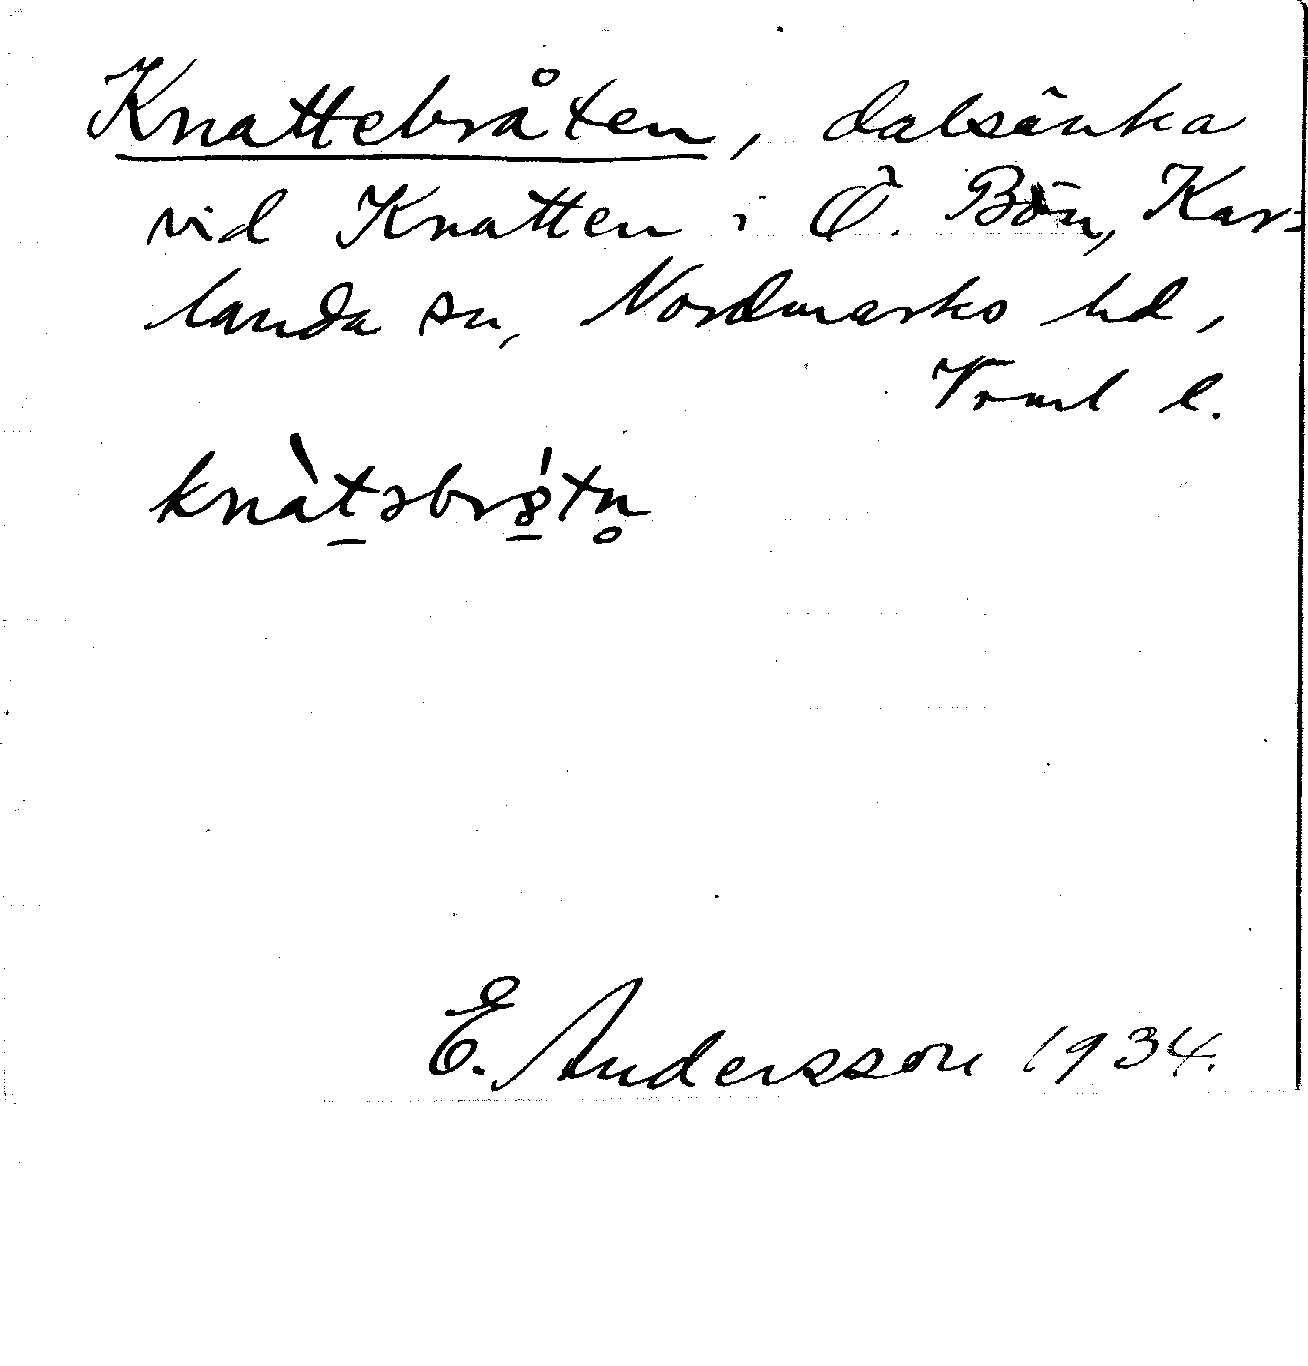 Knattebråten, dalsänka
vid Knatten i Ö. Bön, Kar-
landa sn, Nordmarks hd,
Vrml l.
E. Andersson 1934.